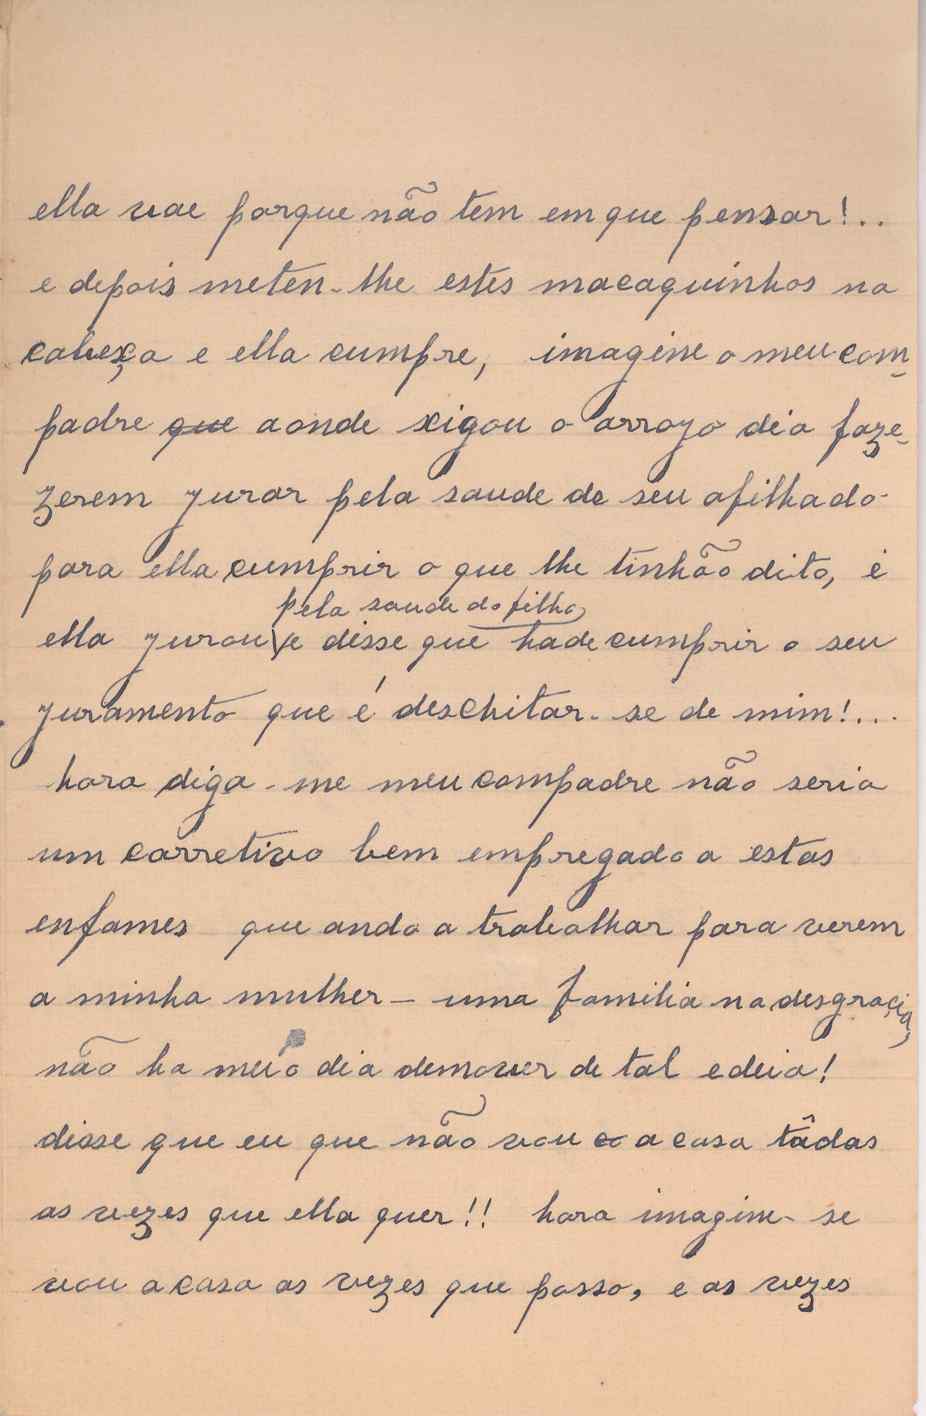 ella vae porque não tem em que pensar!..
e depois meten-lhe estes macaquinhos na
cabeça e ella cumpre, imagine o meu com-
padre que aonde xigou o arrojo dia faze-
zerem jurar pela saude de seu afilhado
para ella cumprir o que lhe tinhão dito, é
pela saude do filho
ella jurou e disse que hade cumprir o seu
juramento que é deschitar-se de mim!...
hora diga-me meu compadre não seria
um corretivo bem empregado a estas
enfames que anda a trabalhar para verem
a minha mulher — uma familia na desgraçia,
não ha meio dia demover de tal edeia!
disse que eu que não vou a casa tâdas
as vezes que ella quer!! hora imagine-se
vou a casa as vezes que posso, e as vezes